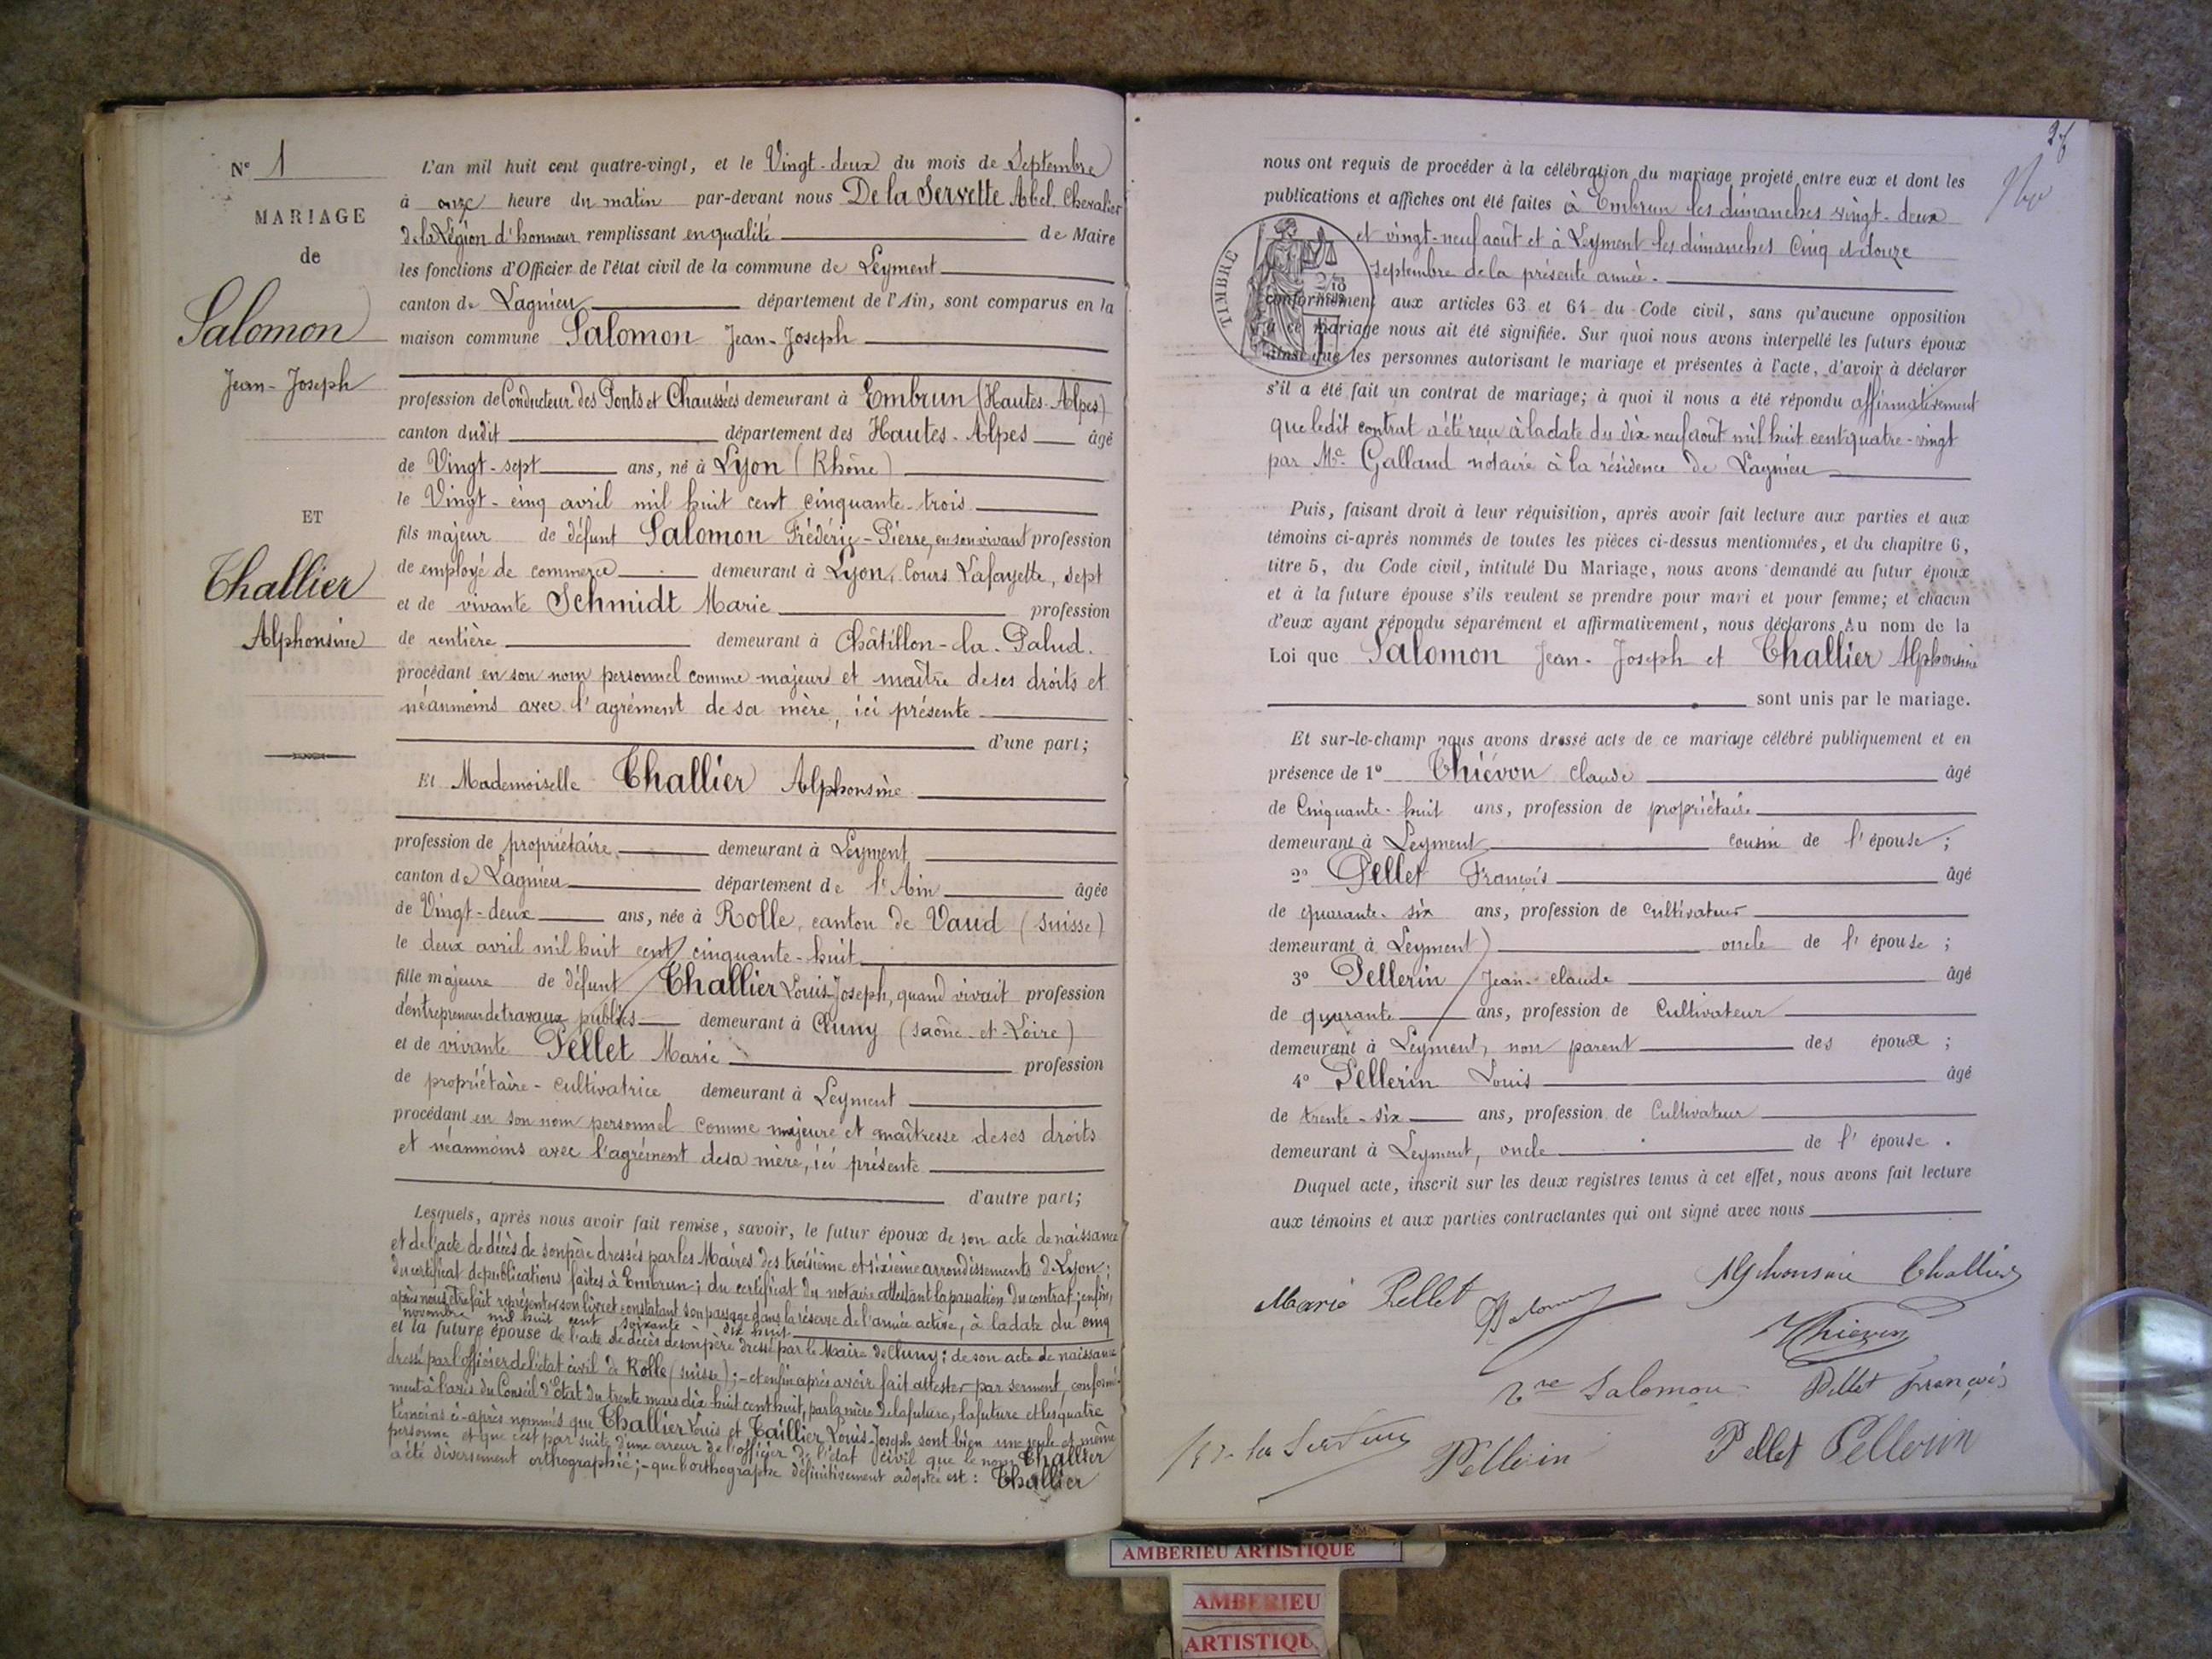 N° 1
MARIAGE
de
Salomon
Jean-Joseph
ET
Challier
Alphonsine
L'an mil huit cent quatre-vingt, et le Vingt-deux du mois de Septembre
à onze heure du matin par-devant nous De la Servette Abel. Chevalier
de la Légion d'honneur remplissant en qualité de Maire
les fonctions d'Officier de l'état civil de la commune de Leyment
canton de Lagnieu département de l'Ain, sont comparus en la
maison commune Salomon Jean-Joseph
profession de Conducteur des Ponts et Chaussées demeurant à Embrun (Hautes-Alpes)
canton dudit département des Hautes-Alpes âgé
de Vingt-sept ans, né à Lyon (Rhône)
le Vingt-cinq avril mil huit cent cinquante-trois
fils majeur de défunt Salomon Frédéric-Pierre, en son vivant profession
de employé de commerce demeurant à Lyon, Cours Lafayette, sept
et de vivante Schmidt Marie profession
de rentière demeurant à Châtillon-la-Palud.
procédant en son nom personnel comme majeur et maître de ses droits et
néanmoins avec l'agrément de sa mère, ici présente
d'une part;
Et Mademoiselle Challier Alphonsine
profession de propriétaire demeurant à Leyment
canton de Lagnieu département de l'Ain âgée
de Vingt-deux ans, née à Rolle, canton de Vaud (Suisse)
le deux avril mil huit cent cinquante-huit
fille majeure de défunt Challier Louis-Joseph, quand vivait profession
d'entrepreneur de travaux publics demeurant à Cluny (Saône-et-Loire)
et de vivante Pellet Marie profession
de propriétaire-cultivatrice demeurant à Leyment
procédant en son nom personnel comme majeure et maîtresse de ses droits
et néanmoins avec l'agrément de sa mère, ici présente
d'autre part;
Lesquels, après nous avoir fait remise, savoir, le futur époux de son acte de naissance
et de l'acte de décès de son père dressés par les Maires des troisième et sixième arrondissements de Lyon;
du certificat de publications faites à Embrun; du certificat du notaire attestant la passation du contrat; enfin,
après nous être fait représenter son livret constatant son passage dans la réserve de l'armée active, à la date du cinq
novembre mil huit cent soixante-dix-huit
et la future épouse de l'acte de décès de son père dressé par le Maire de Cluny; de son acte de naissance
dressé par l'officier de l'état civil de Rolle (Suisse);- et enfin après avoir fait attester par serment, conformé-
ment à l'avis du Conseil d'Etat du trente mars dix-huit cent huit, par la mère de la future, la future et les quatre
témoins ci-après nommés que Challier Louis et Taillier Louis-Joseph sont bien une seule et même
personne et que c'est par suite d'une erreur de l'officier de l'état civil que le nom Challier
a été diversement orthographié;- que l'orthographe définitivement adoptée est: Challier
nous ont requis de procéder à la célébration du mariage projeté entre eux et dont les
publications et affiches ont été faites à Embrun les dimanches vingt-deux
et vingt-neuf août et à Leyment les dimanches Cinq et douze
Septembre de la présente année.
TIMBRE
conformément aux articles 63 et 64 du Code civil, sans qu'aucune opposition
à ce mariage nous ait été signifiée. Sur quoi nous avons interpellé les futurs époux
ainsi que les personnes autorisant le mariage et présentes à l'acte, d'avoir à déclarer
s'il a été fait un contrat de mariage; à quoi il nous a été répondu affirmativement
que ledit contrat a été reçu à la date du dix neuf août mil huit cent quatre-vingt
par Me Galland notaire à la résidence de Lagnieu
Puis, faisant droit à leur réquisition, après avoir fait lecture aux parties et aux
témoins ci-après nommés de toutes les pièces ci-dessus mentionnées, et du chapitre 6,
titre 5, du Code civil, intitulé Du Mariage, nous avons demandé au futur époux
et à la future épouse s'ils veulent se prendre pour mari et pour femme; et chacun
d'eux ayant répondu séparément et affirmativement, nous déclarons Au nom de la
Loi que Salomon Jean-Joseph et Challier Alphonsine
sont unis par le mariage.
Et sur-le-champ nous avons dressé acte de ce mariage célébré publiquement et en
présence de 1° Thiévon Claude âgé
de Cinquante-huit ans, profession de propriétaire
demeurant à Leyment cousin de l'épouse;
2° Pellet François âgé
de quarante-six ans, profession de Cultivateur
demeurant à Leyment oncle de l'épouse;
3° Pellerin Jean-Claude âgé
de quarante ans, profession de Cultivateur
demeurant à Leyment, non parent des époux;
4° Pellerin Louis âgé
de trente-six ans, profession de Cultivateur
demeurant à Leyment, oncle de l'épouse.
Duquel acte, inscrit sur les deux registres tenus à cet effet, nous avons fait lecture
aux témoins et aux parties contractantes qui ont signé avec nous
Alphonsine Challier
Marie Pellet Salomon
Thievon
Vve Salomon Pellet François
De la Servette Pellerin Pellet Pellerin
AMBERIEU ARTISTIQUE
AMBERIEU
ARTISTIQU